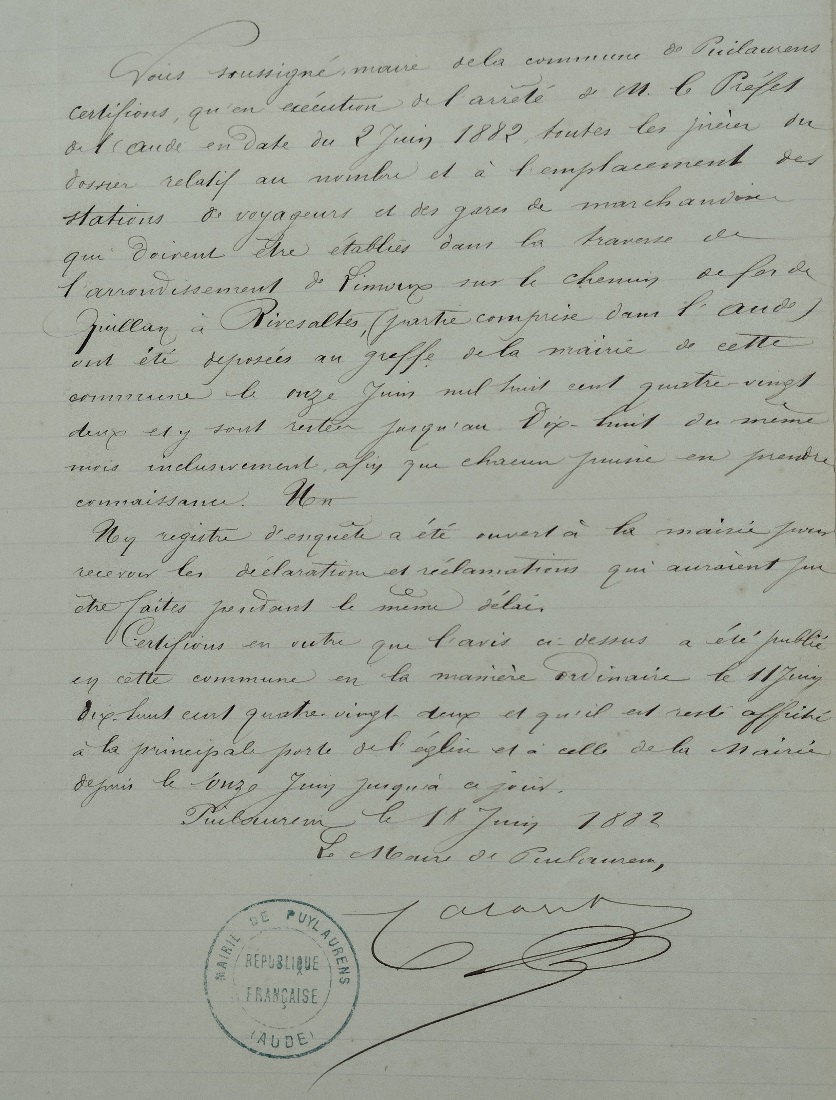 Nous soussigné, maire de la commune de Puilaurens
certifions, qu'en exécution de l'arrêté de M. le Préfet
de l'Aude en date du 2 Juin 1882, toutes les pièces du
dossier relatif au nombre et à l'emplacement des
stations de voyageurs et des gares de marchandises
qui doivent être établies dans la traverse de
l'arrondissement de Limoux sur le chemin de fer de
Quillan à Rivesaltes, (partie comprise dans l'Aude)
ont été deposées au greffe de la mairie de cette
commune le onze Juin mil huit cent quatre-vingt
deux et y sont restées jusqu'au Dix-huit du même
mois inclusivement, afin que chacun puisse en prendre
connaissance. Un
Un registre d'enquête a été ouvert à la mairie pour
recevoir les déclarations et réclamations qui auraient pu
être faites pendant le même délai.
Certifions en outre que l'avis ci-dessus a été publié
en cette commune en la manière ordinaire le 11 Juin
dix-huit cent quatre-vingt deux et qu'il est resté affiché
à la principale porte de l'église et à celle de la Mairie
depuis le onze Juin jusqu'à ce jour.
Puilaurens le 18 Juin 1882
Le Maire de Puilaurens,
MAIRIE DE PUYLAURENS
RÉPUBLIQUE
FRANÇAISE
(AUDE)